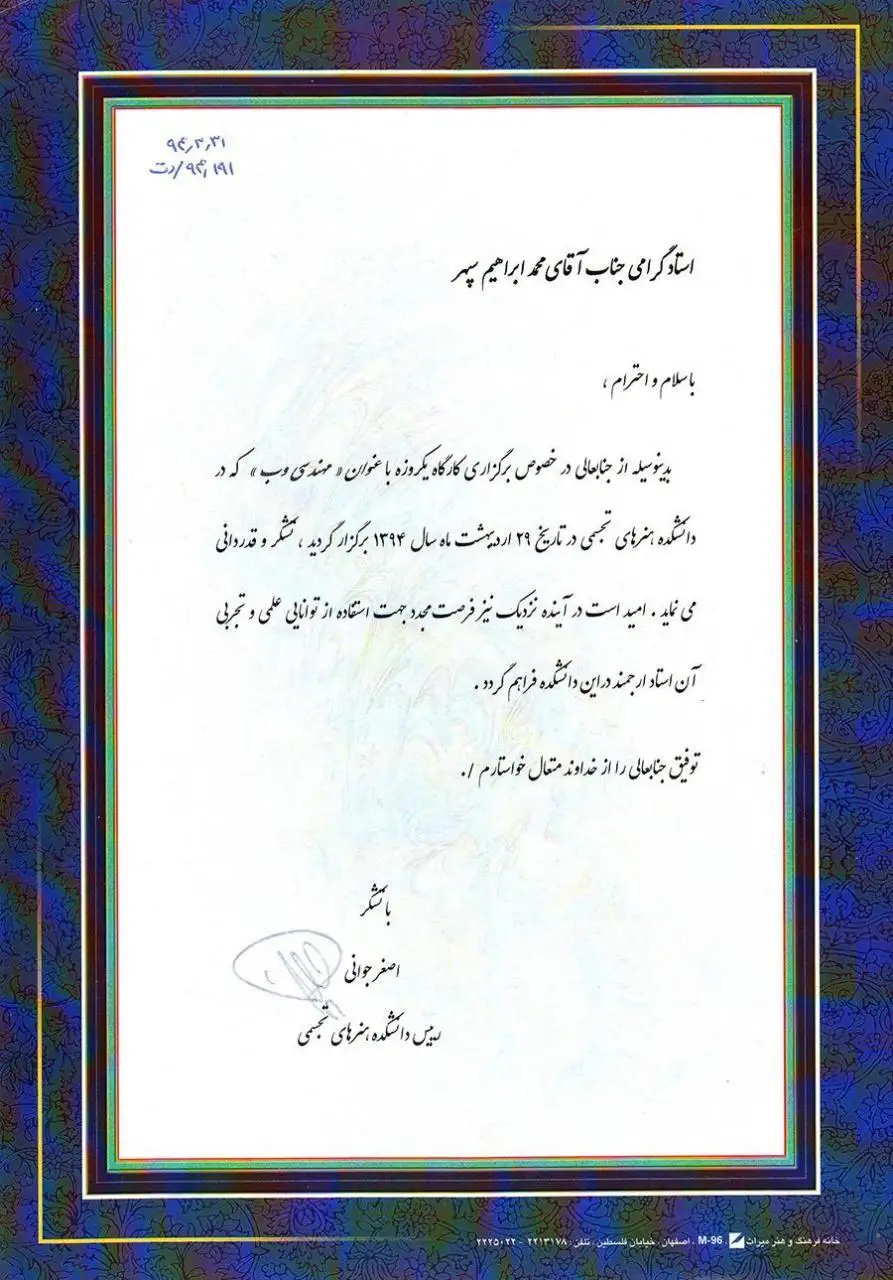 ۹۴٫۳٫۳۱
۹۴٫۱۹۱/دت
استاد گرامی جناب آقای محمد ابراهیم سپهر
با سلام و احترام ،
بدینوسیله از جنابعالی در خصوص برگزاری کارگاه یکروزه با عنوان « مهندسی وب » که در
دانشکده هنرهای تجسمی در تاریخ ۲۹ اردیبهشت ماه سال ۱۳۹۴ برگزار گردید ، تشکر و قدردانی
می نماید . امید است در آینده نزدیک نیز فرصت مجدد جهت استفاده از توانایی علمی و تجربی
آن استاد ارجمند دراین دانشکده فراهم گردد .
توفیق جنابعالی را از خداوند متعال خواستارم /.
با تشکر
اصغر جوانی
رییس دانشکده هنرهای تجسمی
خانه فرهنگ و هنر میراث M-96 . اصفهان ، خیابان فلسطین ، تلفن : ۲۲۱۳۱۷۸ - ۲۲۲۵۰۲۲